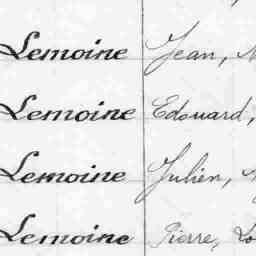 Lemoine Jean,
Lemoine Edouard,
Lemoine Julien,
Lemoine Pierre,